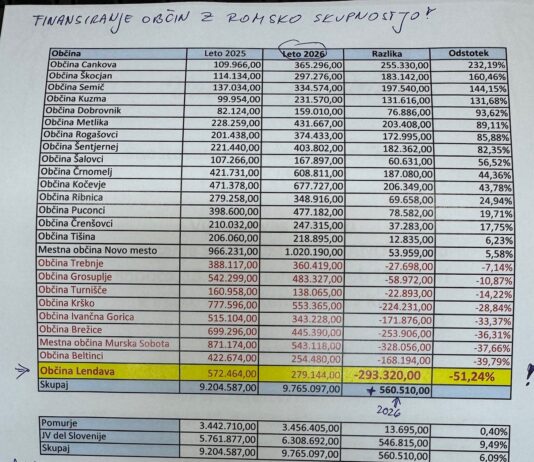 FINANSIRANJE OBČIN Z ROMSKO SKUPNOSTJO!
Občina Leto 2025 Leto 2026 Razlika Odstotek
Občina Cankova 109.966,00 365.296,00 255.330,00 232,19%
Občina Škocjan 114.134,00 297.276,00 183.142,00 160,46%
Občina Semič 137.034,00 334.574,00 197.540,00 144,15%
Občina Kuzma 99.954,00 231.570,00 131.616,00 131,68%
Občina Dobrovnik 82.124,00 159.010,00 76.886,00 93,62%
Občina Metlika 228.259,00 431.667,00 203.408,00 89,11%
Občina Rogašovci 201.438,00 374.433,00 172.995,00 85,88%
Občina Šentjernej 221.440,00 403.802,00 182.362,00 82,35%
Občina Šalovci 107.266,00 167.897,00 60.631,00 56,52%
Občina Črnomelj 421.731,00 608.811,00 187.080,00 44,36%
Občina Kočevje 471.378,00 677.727,00 206.349,00 43,78%
Občina Ribnica 279.258,00 348.916,00 69.658,00 24,94%
Občina Puconci 398.600,00 477.182,00 78.582,00 19,71%
Občina Črenšovci 210.032,00 247.315,00 37.283,00 17,75%
Občina Tišina 206.060,00 218.895,00 12.835,00 6,23%
Mestna občina Novo mesto 966.231,00 1.020.190,00 53.959,00 5,58%
Občina Trebnje 388.117,00 360.419,00 -27.698,00 -7,14%
Občina Grosuplje 542.299,00 483.327,00 -58.972,00 -10,87%
Občina Turnišče 160.958,00 138.065,00 -22.893,00 -14,22%
Občina Krško 777.596,00 553.365,00 -224.231,00 -28,84%
Občina Ivančna Gorica 515.104,00 343.228,00 -171.876,00 -33,37%
Občina Brežice 699.296,00 445.390,00 -253.906,00 -36,31%
Mestna občina Murska Sobota 871.174,00 543.118,00 -328.056,00 -37,66%
Občina Beltinci 422.674,00 254.480,00 -168.194,00 -39,79%
Občina Lendava 572.464,00 279.144,00 -293.320,00 -51,24% !
Skupaj 9.204.587,00 9.765.097,00 + 560.510,00
2026
Pomurje 3.442.710,00 3.456.405,00 13.695,00 0,40%
JV del Slovenije 5.761.877,00 6.308.692,00 546.815,00 9,49%
Skupaj 9.204.587,00 9.765.097,00 560.510,00 6,09%